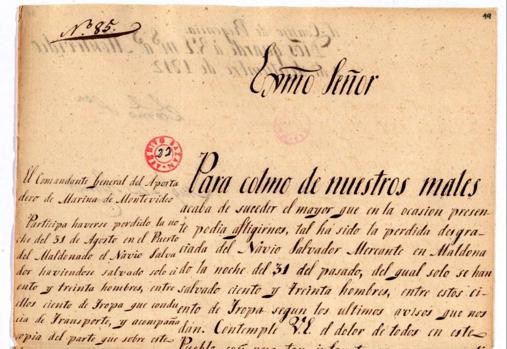 Nº 85.
44
Exmõ Señor
ARCHIVO BAZAN
22
El Comandante General del Aposta
dero de Marina de Montevideo
Participa haverse perdido la no
che del 31 de Agosto en el Puerto
del Maldonado el Navio Salva
dor haviendose salvado solo ci
ento y treinta hombres, entre
ellos ciento de Tropa que condu
cia de Transporte, y acompaña
copia del parte que sobre este
Para colmo de nuestros males
acaba de suceder el mayor que en la ocasion presen
te podia afligirnos, tal há sido la perdida desgra
ciada del Návio Salvador Mercante en Maldona
do la noche del 31 del pasado, del qual solo se han
salvado ciento y treinta hombres, entre estos ci
ento de Tropa segun los ultimos avisos que nos
dan. Contemple V.E. el dolor de todos en este
Pueblo